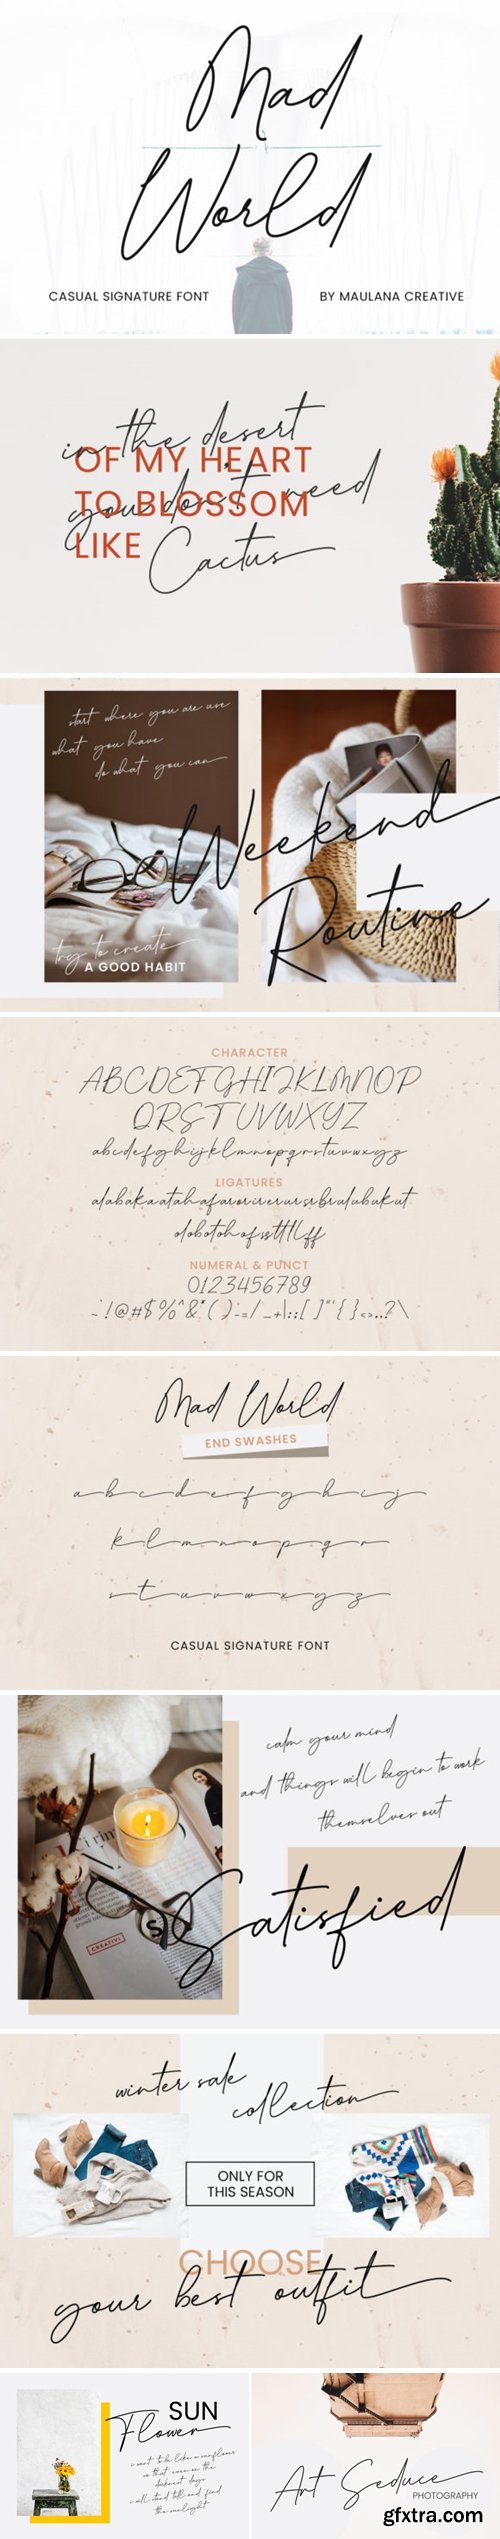 Mad
World
CASUAL SIGNATURE FONT
BY MAULANA CREATIVE
in the desert
OF MY HEART
you don't need
TO BLOSSOM
LIKE
Cactus
start where you are use
what you have
do what you can
Weekend
Routine
try to create
A GOOD HABIT
CHARACTER
ABCDEFGHIJKLMNOP
QRSTUVWXYZ
abcdefghijklmnopqrstuvwxyz
LIGATURES
NUMERAL & PUNCT
0123456789
Mad World
END SWASHES
a b c d e f g h i j
k l m n o p q r
s t u v w x y z
CASUAL SIGNATURE FONT
calm your mind
and things will begin to work
themselves out
CREATIVI
Satisfied
winter sale
collection
ONLY FOR
THIS SEASON
CHOOSE
your best outfit
SUN
Flower
i want to be like a sunflower
so that even on the
darkest days
i will stand tall and find
the sunlight
Art Seduce
PHOTOGRAPHY
gfxtra.com